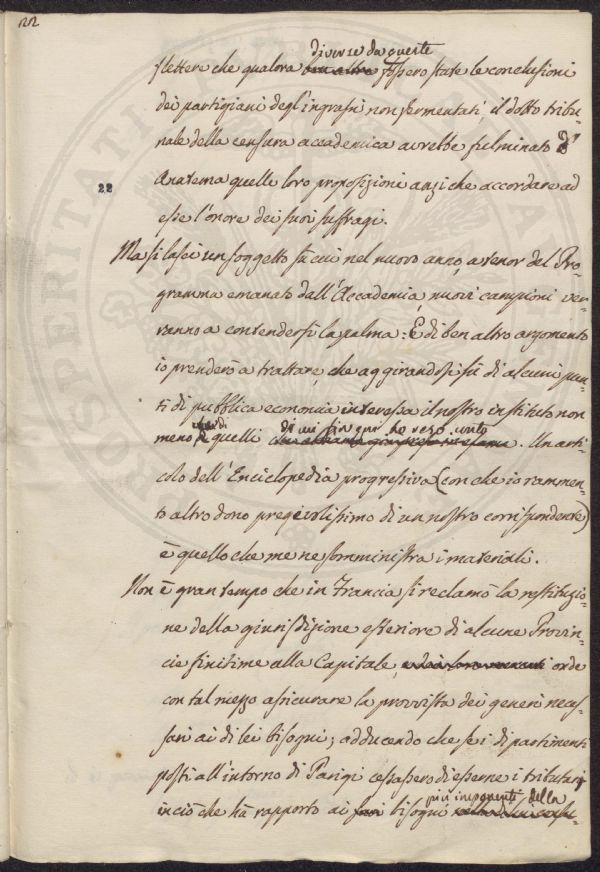 22
diverse da queste
stettere che qualora ben altre fossero state le conclusioni
dei partigiani degl'ingrassi non fermentati, il dotto tribu-
nale della censura accademica avrebbe fulminato d'
22
Anatema quelle loro proposizioni anziche accordare ad
esse l'onore dei suoi suffragi.
Ma si lasci un soggetto su cui nel nuovo anno, a tenor del Pro-
gramma emanato dall'Accademia, nuovi campioni ver-
ranno a contendersi la palma: E di ben altro argomento
io prenderò a trattare, che aggirandosi su di alcuni pun-
ti di pubblica economia interessa il nostro instituto non
meno di quelli di cui fin qui ho reso conto. Un arti-
colo dell'Enciclopedia progressiva (con che io rammen-
to altro dono pregievolissimo di un nostro corrispondente)
è quello che me ne somministra i materiali.
Non è gran tempo che in Francia si reclamò la restituzio-
ne della giurisdizione esteriore di alcune Provin-
cie finitime alla Capitale, onde
con tal mezzo assicurare la provvista dei generi neces-
sari ai di lei bisogni; adducendo che se i dipartimenti
posti all'intorno di Parigi cessassero di esserne i tributarj
più imponenti della
in ciò che hà rapporto ai bisogni